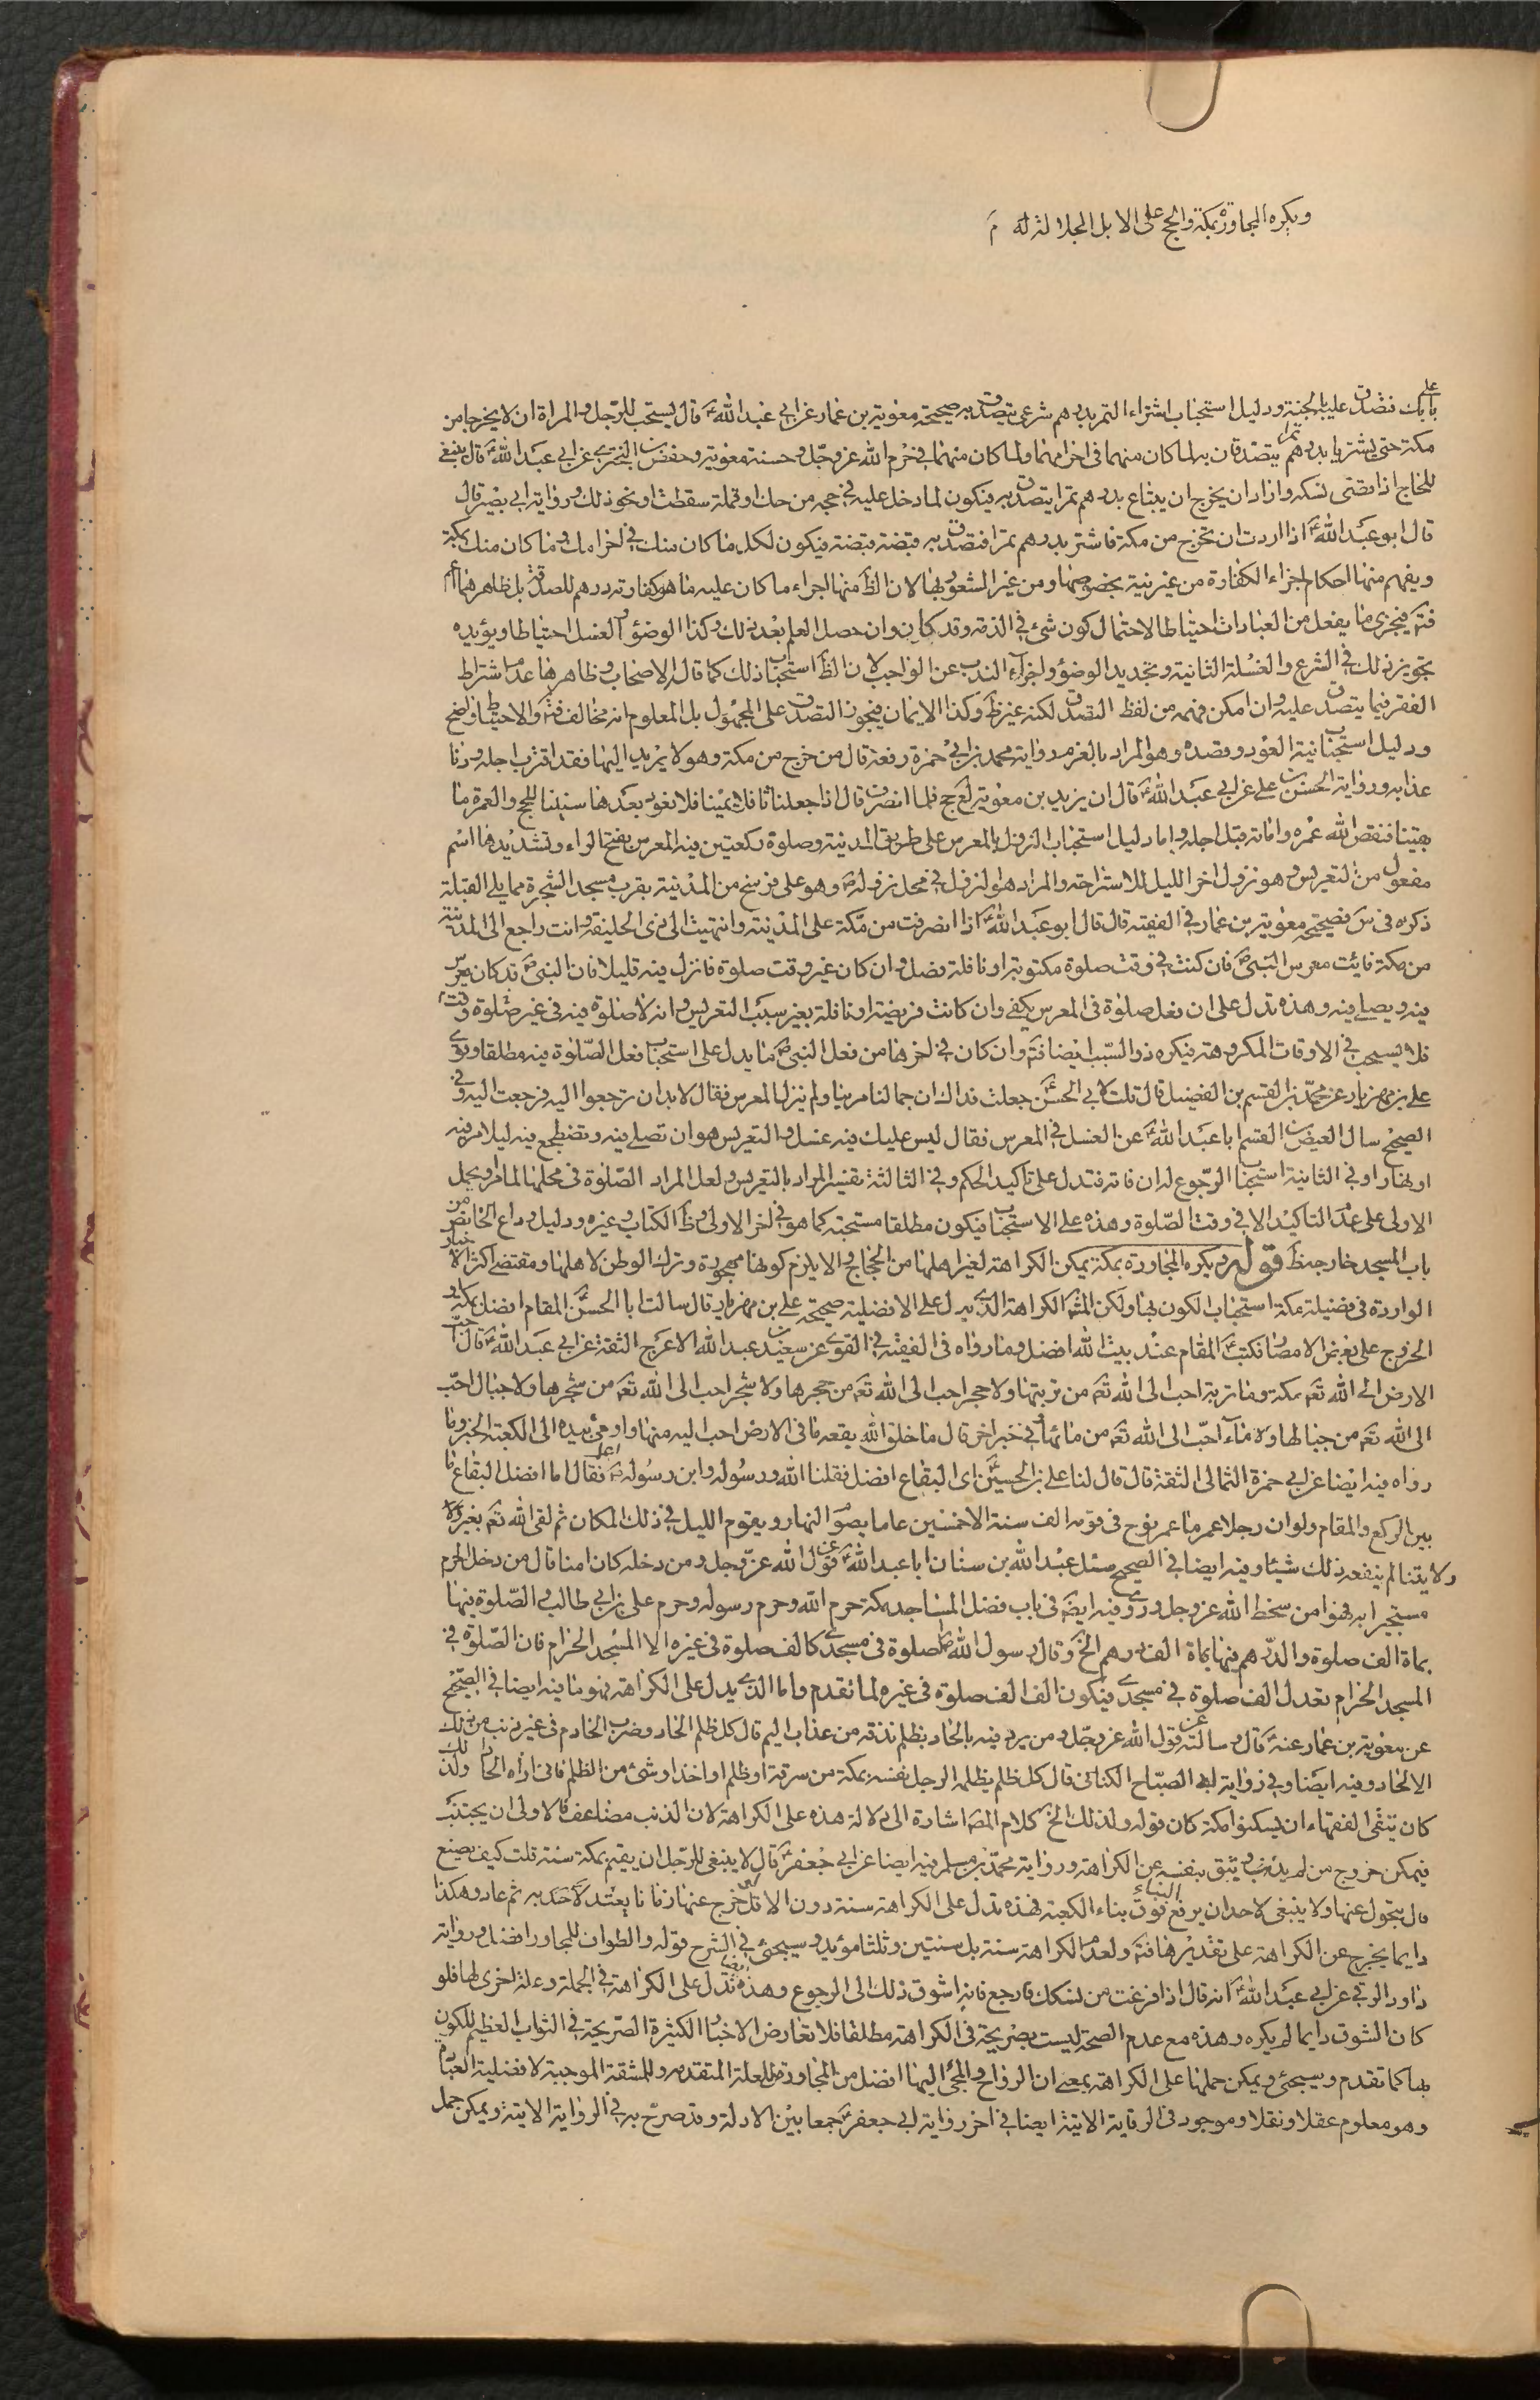 ويكره المجاورة بمكة والحج على الابل الجلالة له م
بابك فتصدق على بالجنة ودليل استحباب اشتراء التمر بدرهم شرعى يتصدق به صحيحة معوية بن عمار عن ابي عبد الله ع قال يستحب للرجل والمراة ان لا يخرجا من
مكة حتى يشتريا بدرهم تمرا يتصدقان به لما كان منهما فى احرامهما ولما كان منهما فى حرم الله عز وجل وحسنة معوية وحفص بن البخترى عن ابي عبد الله ع قال ينبغى
للحاج اذا قضى نسكه واراد ان يخرج ان يبتاع بدرهم تمرا يتصدق به فيكون لما دخل عليه فى حجه من حك او قملة سقطت او نحو ذلك ورواية ابي بصير قال
قال ابو عبد الله ع اذا اردت ان تخرج من مكة فاشتر بدرهم تمرا فتصدق به قبضة قبضة فيكون لكل ما كان منك فى احرامك وما كان منك بمكة
ويفهم منها احكام اجزاء الكفارة من غير نية بخصوصها ومن غير الشعور بها لان الظ منها اجزاء ما كان عليه ما هو كفارته درهم للصدقة بل ظاهرها اعم
فتم فيجزى ما يفعل من العبادات احتياطا لاحتمال كون شئ فى الذمة وقد كان وان حصل العلم بعد ذلك وكذا الوضوء والغسل احتياطا ويؤيده
تجويز ذلك فى الشرع والغسلة الثانية وتجديد الوضوء واجزاء الندب عن الواجب لان الظ استحباب ذلك كما قاله الاصحاب وظاهرها عدم اشتراط
الفقر فيما يتصدق عليه وان امكن فهمه من لفظ التصدق لكنه غير ظ وكذا الايمان فيجوز التصدق على المجهول بل المعلوم انه مخالف فتم والاحتياط واضح
ودليل استحباب نية العود وقصده وهو المراد بالعزم رواية محمد بن ابي حمزة رفعه قال من خرج من مكة وهو لا يريد العود اليها فقد اقترب اجله ودنا
عذابه ورواية الحسن بن على عن ابي عبد الله ع قال ان يزيد بن معوية لع حج فلما انصرف قال اذا جعلنا ثافلا يمينا فلا نعود بعدها سنينا للحج والعمرة ما
بقينا فنقص الله عمره واماته قبل اجله واما دليل استحباب النزول بالمعرس على طريق المدينة وصلوة ركعتين فيه المعرس بفتح الراء وتشديدها اسم
مفعول من التعريس وهو نزول اخر الليل للاستراحة والمراد هو النزول فى محل نزوله ص وهو على فرسخ من المدينة بقرب مسجد الشجرة مما يلى القبلة
ذكره فى س فصحيحة معوية بن عمار فى الفقيه قال قال ابو عبد الله ع اذا انصرفت من مكة على المدينة وانتهيت الى ذى الحليفة وانت راجع الى المدينة
من مكة فائت معرس النبى ص فان كنت فى وقت صلوة مكتوبة او نافلة فصل وان كان غير وقت صلوة فانزل فيه قليلا فان النبى ص قد كان يعرس
فيه ويصلى فيه وهذه تدل على ان فعل صلوة فى المعرس يكفى وان كانت فريضة او نافلة بغير سبب التعريس وانه لا صلوة فيه فى غير صلوة وقت
فلا يستحب فى الاوقات المكروهة فيكره ذو السبب ايضا فتم وان كان فى اخرها من فعل النبى ص ما يدل على استحباب فعل الصلوة فيه مطلقا وروى
على بن مهزيار عن محمد بن القسم بن الفضيل قال قلت لابي الحسن ع جعلت فداك ان جمالنا مر بنا ولم ينزل المعرس فقال لا بد ان ترجعوا اليه فرجعت اليه وفى
الصحيح سال العيص بن القسم ابا عبد الله ع عن الغسل فى المعرس فقال ليس عليك فيه غسل والتعريس هو ان تصلى فيه وتضطجع فيه ليلا مر فيه
او نهارا وفى الثانية استحباب الرجوع له ان فاته فتدل على تاكيد الحكم وفى الثالثة تفسير المراد بالتعريس ولعل المراد الصلوة فى محلها لما مر ويحمل
الاولى على عدم التاكيد الا فى وقت الصلوة وهذه على الاستحباب فيكون مطلقا مستحبة كما هو فى اخر الاولى وظ الكتاب وغيره ودليل وداع الحائض من
باب المسجد خارجة ظ قوله ويكره المجاورة بمكة يمكن الكراهة لغير اهلها من الحجاج والا يلزم كونها مهجورة وترك الوطن لاهلها ومقتضى اكثر الاخبار
الواردة فى فضيلة مكة استحباب الكون بها ولكن المش الكراهة الذى يدل على الافضلية صحيحة على بن مهزيار قال سالت ابا الحسن ع المقام افضل بمكة او
الخروج على بعض الامصار فكتب ع المقام عند بيت الله افضل وما رواه فى الفقيه فى القوى عن سعيد بن عبد الله الاعرج الثقة عن ابي عبد الله ع قال احب
الارض الى الله تعم مكة وما تربة احب الى الله تعم من تربتها ولا حجر احب الى الله تعم من حجرها ولا شجر احب الى الله تعم من شجرها ولا جبال احب
الى الله تعم من جبالها ولا ماء احب الى الله تعم من مائها وفى خبر اخر قال ما خلق الله بقعة فى الارض احب اليه منها واومئ بيده الى الكعبة الخبر وما
رواه فيه ايضا عن ابي حمزة الثمالى الثقة قال قال لنا على بن الحسين ع اى البقاع افضل فقلنا الله ورسوله وابن رسوله اعلم فقال اما افضل البقاع ما
بين الركن والمقام ولو ان رجلا عمر ما عمر نوح فى قومه الف سنة الا خمسين عاما يصوم النهار ويقوم الليل فى ذلك المكان ثم لقى الله تعم بغير
ولايتنا لم ينفعه ذلك شيئا وفيه ايضا فى الصحيح سئل عبد الله بن سنان ابا عبد الله ع عن قول الله عز وجل ومن دخله كان امنا قال من دخل الحرم
مستجيرا به فهو امن من سخط الله عز وجل وروى فيه ايضا فى باب فضل المساجد مكة حرم الله وحرم رسوله وحرم على بن ابي طالب الصلوة فيها
بماة الف صلوة والدرهم فيها بماة الف درهم الخ وقال رسول الله ص الصلوة فى مسجدى كالف صلوة فى غيره الا المسجد الحرام فان الصلوة فى
المسجد الحرام تعدل الف صلوة فى مسجدى فيكون الف الف صلوة فى غيره لما تقدم واما الذى يدل على الكراهة فهو ما فيه ايضا فى الصحيح
عن معوية بن عمار عنه ع قال وسالته عن قول الله عز وجل ومن يرد فيه بالحاد بظلم نذقه من عذاب اليم قال كل ظلم الحاد وضرب الخادم فى غير ذنب من ذلك
الالحاد وفيه ايضا وفى رواية ابي الصباح الكنانى قال كل ظلم يظلمه الرجل نفسه بمكة من سرقة او ظلم او اخذ او شئ من الظلم فانى اراه الحادا ولذلك
كان يتقى الفقهاء ان يسكنوا مكة كان قوله ولذلك الخ كلام المصـ اشارة الى دلالة هذه على الكراهة لان الذنب مضاعف فالاولى ان يجتنب
فيمكن خروج من لم يذنب ويثق بنفسه عن الكراهة ورواية محمد بن مسلم فيه ايضا عن ابي جعفر ع قال لا ينبغى للرجل ان يقيم بمكة سنة قلت كيف يصنع
قال يتحول عنها ولا ينبغى لاحد ان يرفع البناء فوق بناء الكعبة فهذه تدل على الكراهة سنة دون الاقل لو خرج عنها زمانا يعتد لاحد به ثم عاد وهكذا
دايما يخرج عن الكراهة على تقديرها فتم ولعدم الكراهة سنة بل سنتين وثلثا مؤيد وسيجئ فى الشرح قوله والطواف للمجاور افضل ورواية
داود الرقى عن ابي عبد الله ع انه قال اذا فرغت من نسكك فارجع فانه اشوق ذلك الى الرجوع وهذه ايضا تدل على الكراهة فى الجملة وعلة اخرى لها فلو
كان الشوق دايما لم يكره وهذه مع عدم الصحة ليست بصريحة فى الكراهة مطلقا فلا تعارض الاخبار الكثيرة الصريحة فى الثواب العظيم للكون
بها كما تقدم وسيجئ ويمكن حملها على الكراهة بمعنى ان الرواح والمجئ اليها افضل من المجاورة للعلة المتقدمة وللمشقة الموجبة لافضلية العبادة
وهو معلوم عقلا ونقلا وموجود فى الرواية الاتية ايضا فى اخر رواية ابي جعفر ع جمعا بين الادلة وقد صرح به فى الرواية الاتية ويمكن حمل